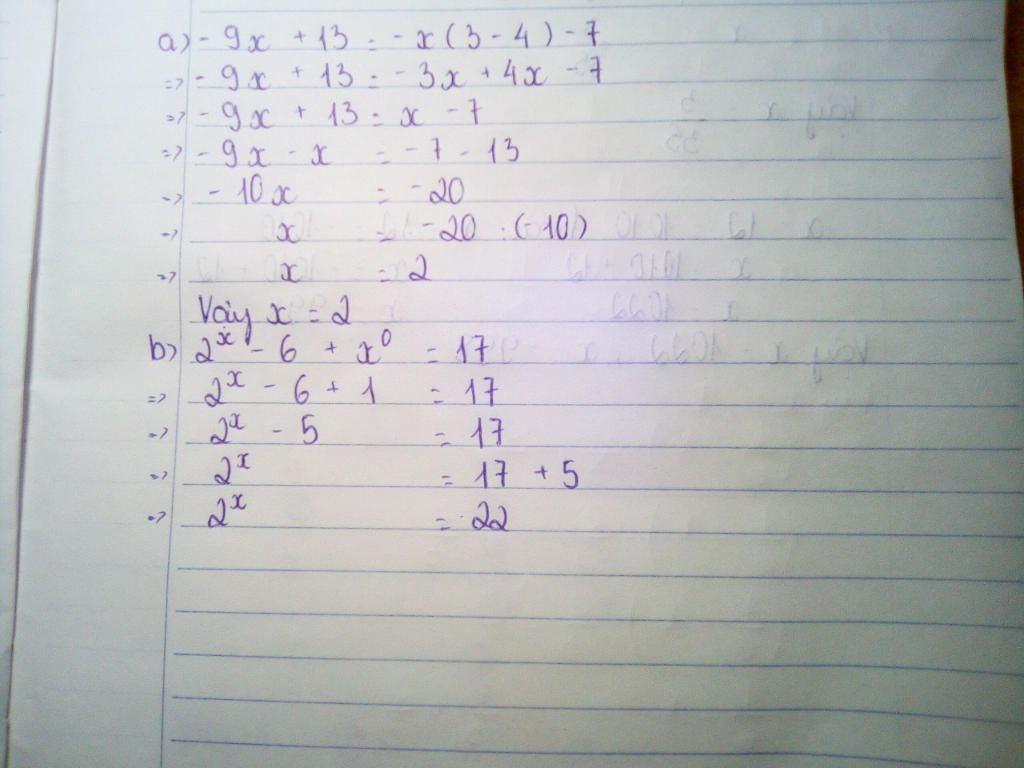 a) - 9x + 13 = - x ( 3 - 4 ) - 7
=> - 9x + 13 = - 3x + 4x - 7
=> - 9x + 13 = x - 7
=> - 9x - x = - 7 - 13
=> - 10x = - 20
=> x = - 20 : (-10)
=> x = 2
Vậy x = 2
b) 2ˣ - 6 + x⁰ = 17
=> 2ˣ - 6 + 1 = 17
=> 2ˣ - 5 = 17
=> 2ˣ = 17 + 5
=> 2ˣ = 22